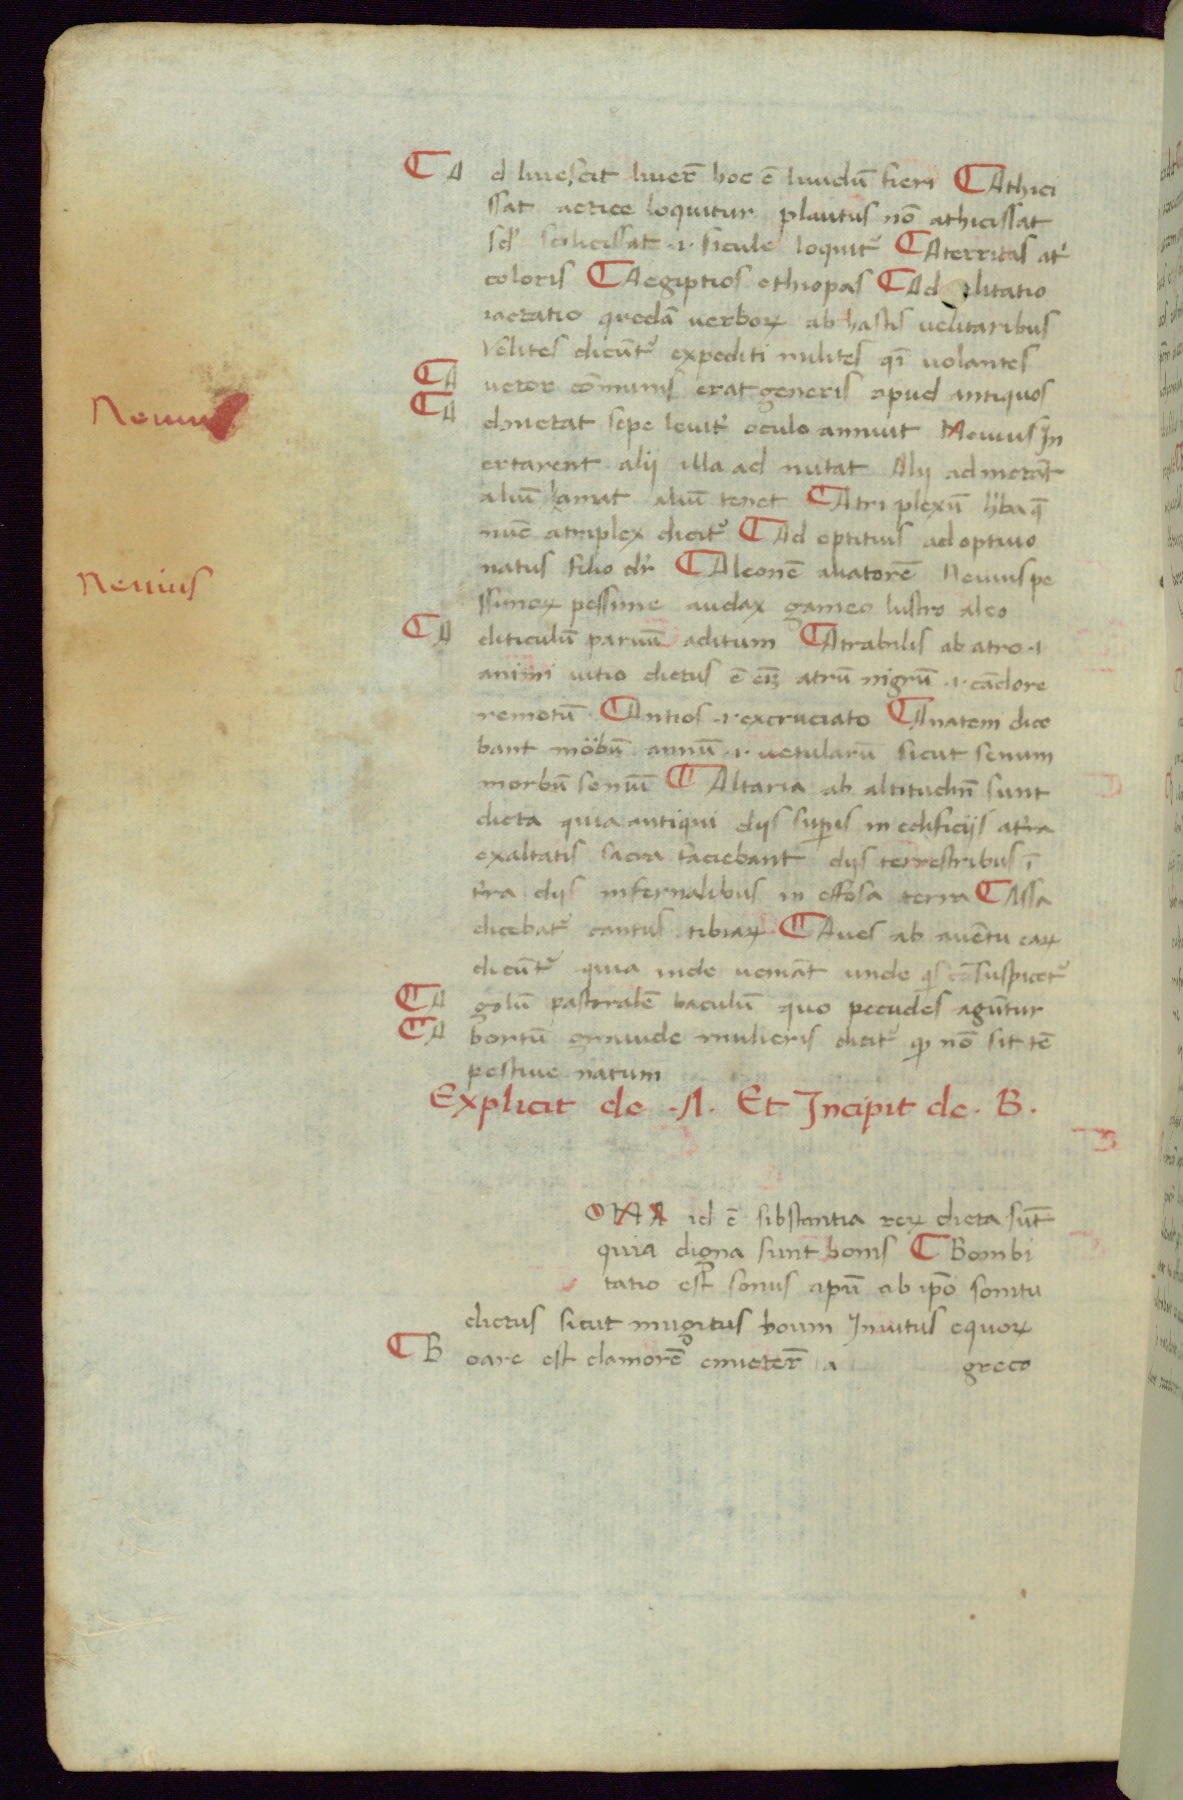 ¶ Ad liuescit liuer̄ hoc ē liuidū fieri ¶ Athici
ssat actice loquitur plautus nō athicissat
sꝫ sicilicissat .i. sicule loquit᷑ ¶ Aterritas at᷑
coloris ¶ Aegiptios ethiopas ¶ Ad elitatio
iactatio quedā uerboꝝ ab hastis uelitaribus
Velites dicūt᷑ expediti milites qī uolantes
¶ Auctor cōmunis erat generis apud antiquos
¶ Adnictat sepe leuit᷑ oculo annuit Neuius In
ertarent alij illa ad nutat Alij ad nictāt
aliū amat aliū tenet ¶ Atriplexū h̓ba q̄
nūc atriplex dicit᷑ ¶ Ad optitius ad optiuo
natus filio dr̄ ¶ Aleonē aleatorē Neuius pe
ssimoꝝ pessime audax ganeo lustro aleo
¶ Aditiculū paruū aditum ¶ Atrabilis ab atro .i.
animi uitio dictus ē eīꝫ atrū nigrū .i. cādore
remotū ¶ Antios .i. excruciato ¶ Anatem dice
bant mōbū annū .i. uetularū sicut senum
morbū seniū ¶ Altaria ab altitudīn̄ sunt
dicta quia antiqui dijs suꝑis in edificijs a t᷑ra
exaltatis sacra faciebant dijs terrestribus ī
t᷑ra dijs infernalibus in effosa terra ¶ Assa
dicebat᷑ cantus tibiaꝝ ¶ Aues ab auētu eaꝝ
dicūt᷑ quia inde ueniāt unde suspicet᷑
¶ Agolū pastoralē baculū quo pecudes agūtur
¶ Abortū grauide mulieris dicit᷑ qđ nō sit tē
pestiue natum
Explicit de .A. Et Incipit de .B.
ONA id ē sibstantia reꝝ dicta sūt
quia digna sunt bonis ¶ Bombi
tatio est sonus apū ab ip̄o sonitu
dictus sicut mugitus boum Inuitus equoꝝ
¶ Boare est clamorē emicter̄ a greco
Neuius
Neuius